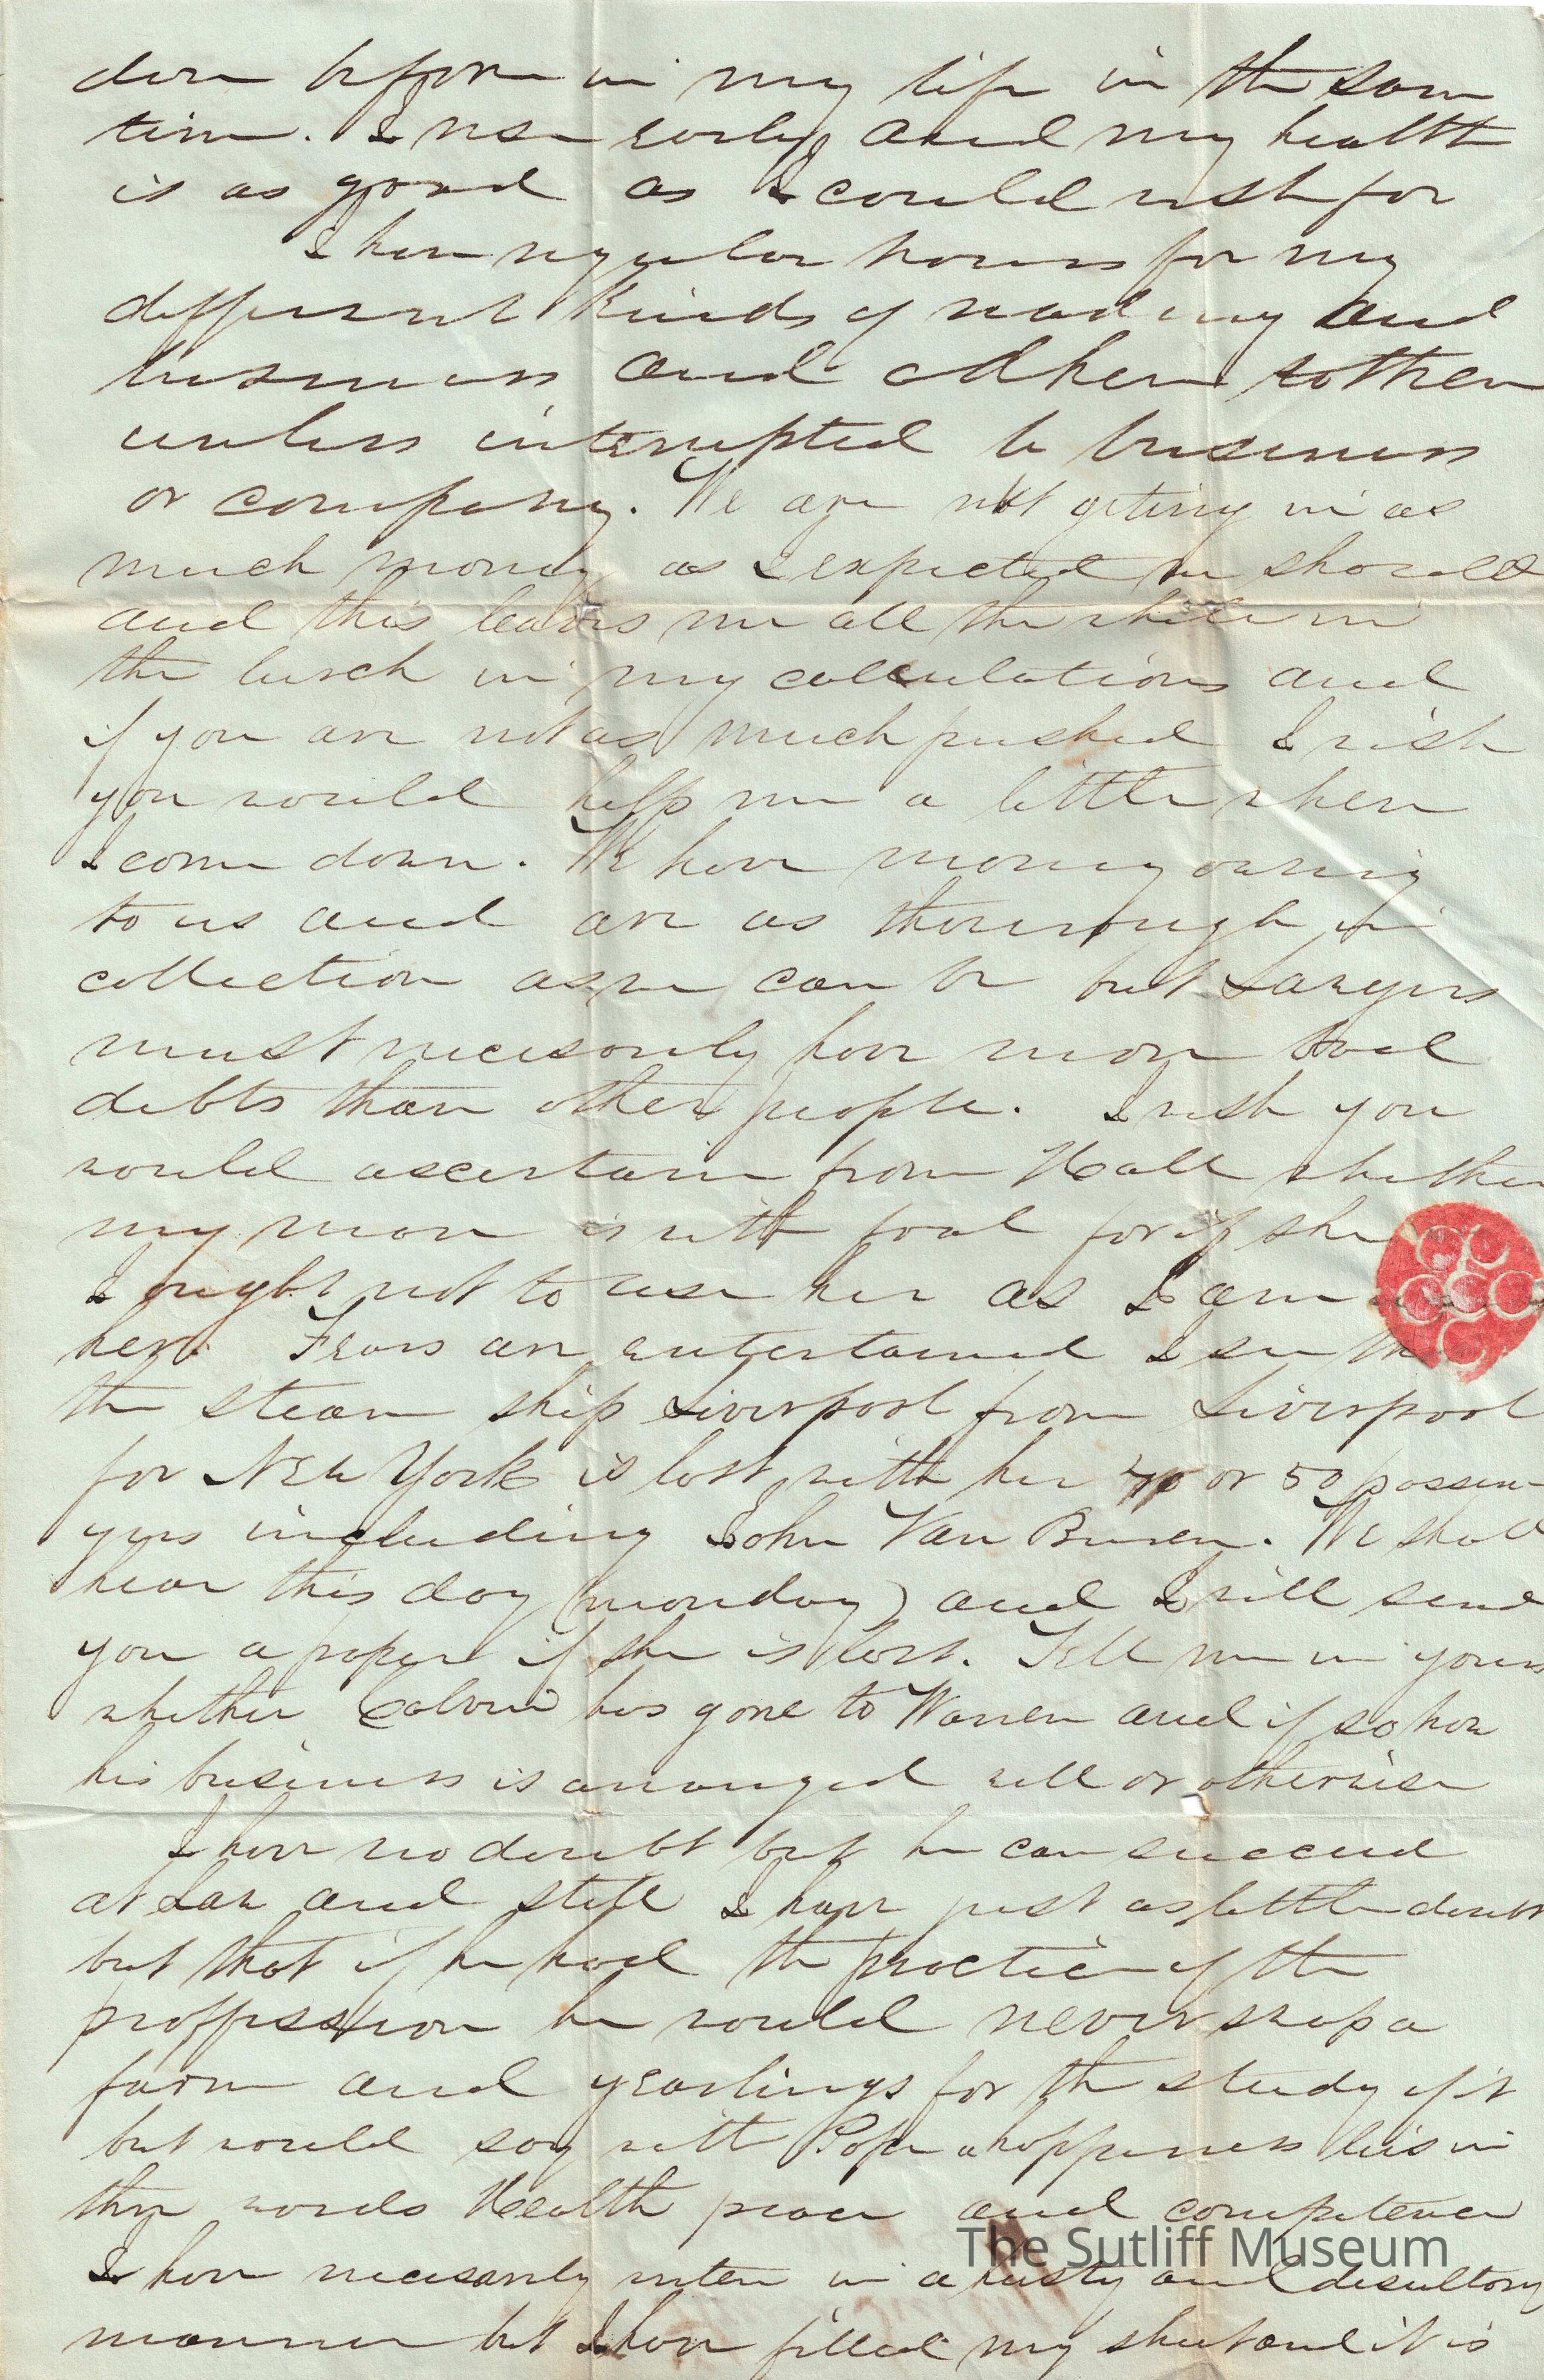 done before in my life in the same
time. I rise early and my health
is as good as I could wish for
I have regular hours for my
different kinds of reading and
business and adhere to them
unless interrupted b business
or company. We are not geting in as
much money as I expected we should
and this leaves me all the while in
the lurch in my calculations and
if you are not as much pushed I wish
you would help me a little when
I come down. We have money owing
to us and are as thorough in
collection as we can be but Lawyers
must necessarily have more bad
debts than other people. I wish you
would ascertain from Hall whether
my mare is with foal for if she
I ought not to use her as I am
her. Fears are entertained I see th
the steam ship Liverpool from Liverpool
for New York is lost with her 40 or 50 passen-
gers including John Van Buren. We shall
hear this day (monday) and I will send
you a paper if she is lost. Tell me in yours
whether Calvin has gone to Warren and if so how
his business is arranged well or otherwise
I have no doubt but he can succeed
at Law and still I have just as little doubt
but that if he had the practice of the
proffession he would never swap a
farm and yearlings for the study of it
but would say with Pope happiness lies in
three words Health peace and competence
I have necessarily writen in a hasty and desultory
manner but I have filled my sheet and it is
The Sutliff Museum